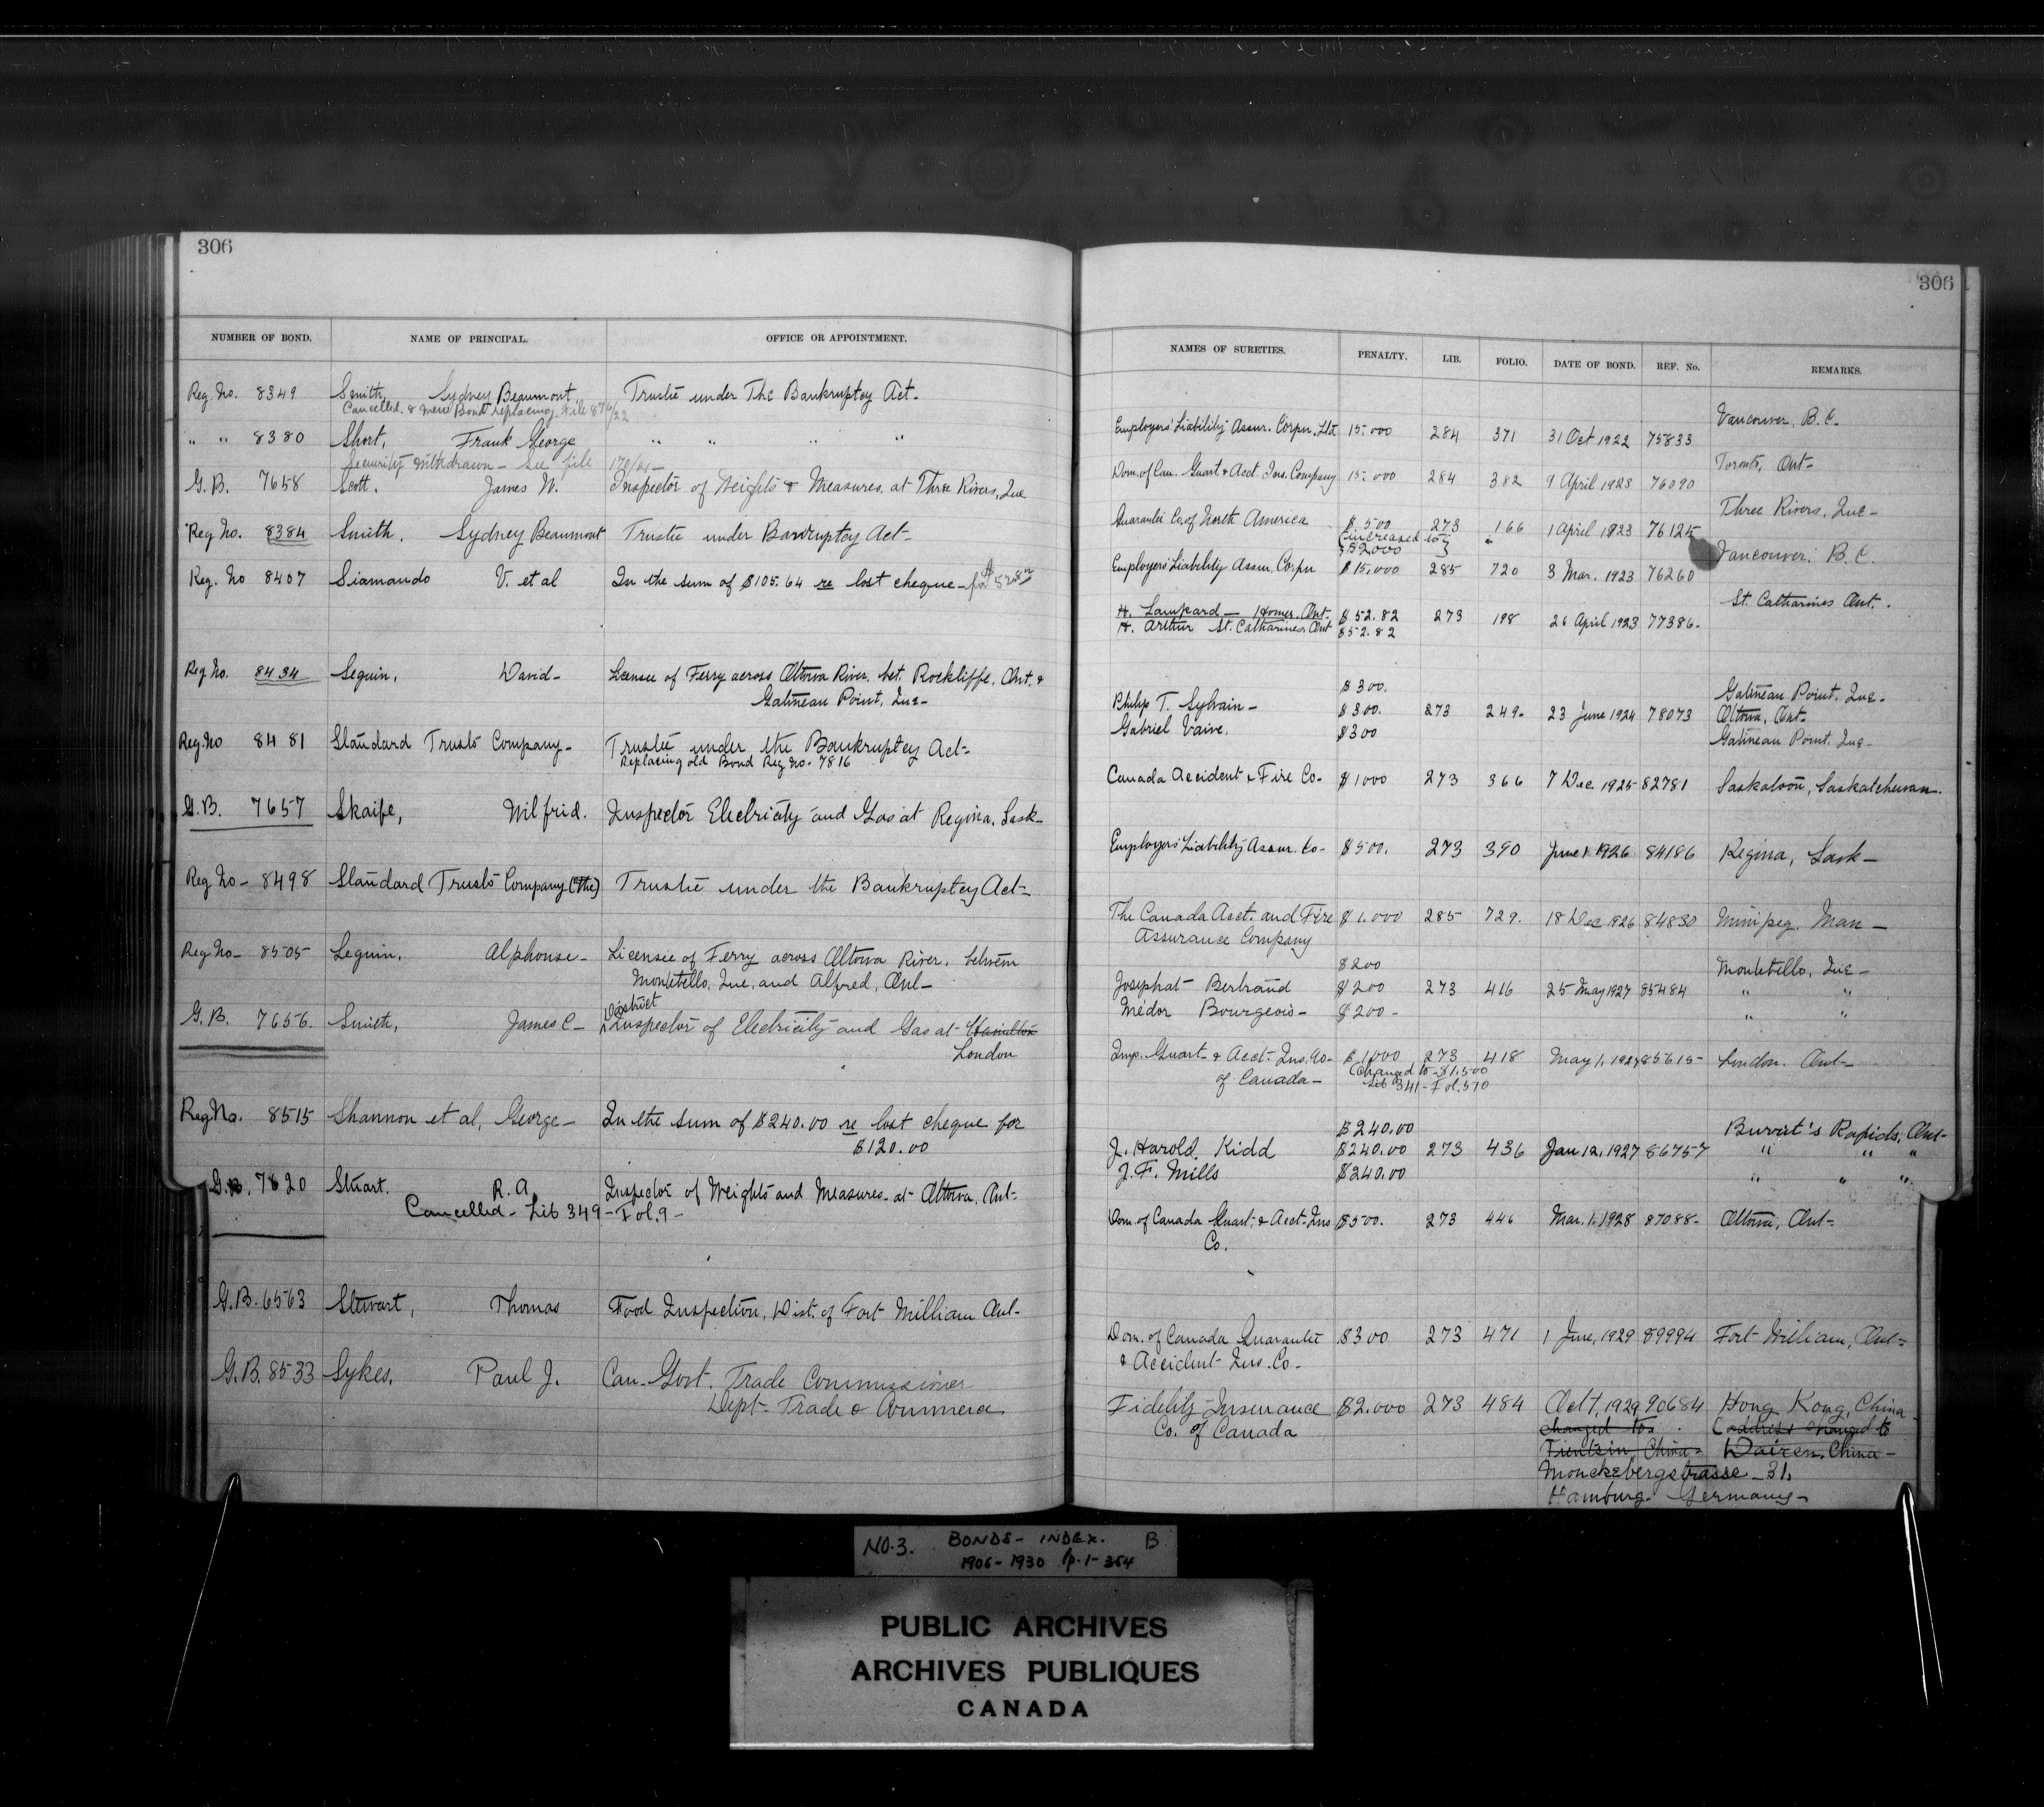 306
NUMBER OF BOND. NAME OF PRINCIPAL. OFFICE OR APPOINTMENT.
Reg. No. 8349 Smith, Sydney Beaumont Trustee under The Bankruptcy Act-
Cancelled & New Bond replacing. File 876/22
" " 8380 Short, Frank George " " " "
Security Withdrawn - See file 170/21-
G.B. 7658 Scott. James W. Inspector of Weights & Measures at Three Rivers, Que
Reg No. 8384 Smith, Sydney Beaumont Trustee under Bankruptcy Act-
Reg. No 8407 Siamando V. et al In the sum of $105.64 re lost cheque-for $52.82
Reg No. 8434 Seguin, David- Licensee of Ferry across Ottawa River, bet. Rockliffe, Ont. &
Gatineau Point, Que-
Reg. No 8481 Standard Trusts Company- Trustee under the Bankruptcy Act-
Replacing old Bond Reg No. 7816
G.B. 7657 Skaife, Wilfrid. Inspector Electricity and Gas at Regina, Sask-
Reg No- 8498 Standard Trusts Company (The) Trustee under the Bankruptcy Act-
Reg No- 8505 Seguin, Alphonse- Licensee of Ferry across Ottawa River, between
Montebello, Que, and Alfred, Ont-
District
G.B. 7656. Smith, James C- Inspector of Electricity and Gas at Hamilton
London
Reg No. 8515 Shannon et al, George- In the sum of $240.00 re lost cheque for
$120.00
G.B. 7820 Stuart. R.A. Inspector of Weights and Measures-at-Ottawa, Ont-
Cancelled- Lib 349-Fol. 9-
G.B. 6563 Stewart, Thomas Food Inspection, Dist. of Fort William Ont-
G.B. 8533 Sykes, Paul J. Can-Govt. Trade Commissioner
Dept- Trade & Commerce
306
NAMES OF SURETIES. PENALTY. LIB. FOLIO. DATE OF BOND. REF. No. REMARKS.
Employers' Liability Assur. Corpn. Ltd 15.000 284 371 31 Oct 1922 75833 Vancouver, B.C.
Dom. of Can. Guart. & Acct. Ins. Company 15.000 284 382 9 April 1923 76090 Toronto, Ont-
Guarantee Co. of North America $.500 273 166 1 April 1923 76125 Three Rivers, Que-
(increased to
$2000
Employers' Liability Assur. Corpn $15,000 285 720 3 Mar. 1923 76260 Vancouver, B.C.
H. Lampard- Homer, Ont. $52.82 273 198 26 April 1923 77386. St. Catharines Ont.
H. Arthur St. Catharines, Ont $52.82
$300. Gatineau Point, Que-
Philip T. Sylvain- $300. 273 249- 23 June 1924 78073 Ottawa, Ont-
Gabriel Vaive. $300 Gatineau Point, Que-
Canada Accident & Fire Co- $1000 273 366 7 Dec 1925 82781 Saskatoon, Saskatchewan.
Employers' Liability Assur. Co- $500. 273 390 June 1 1926 84186 Regina, Sask-
The Canada Acct. and Fire $1,000 285 729. 18 Dec 1926 84830 Winipeg. Man-
Assurance Company
$200 Montebello, Que-
Josephat Bertrand $200 273 416 25 May 1927 85484 " "
Médor Bourgeois- $200- " "
Imp. Guart- & Acct- Ins. Co- $1,000 273 418 May 1, 1927 85615- London. Ont-
of Canada- (Changed to-$1,500
Lib 341-Fol. 570
$240.00 Burritt's Rapids, Ont-
J. Harold. Kidd $240.00 273 436 Jan 12, 1927 86757 " " "
J.F. Mills $240.00 " " "
Dom. of Canada Guart; & Acct- Ins $500. 273 446 Mar. 1. 1928 87088- Ottawa, Ont-
Co.
Dom. of Canada Guarantee $300 273 471 1 June, 1929 89994 Fort William, Ont-
& Accident Ins. Co-
Fidelity Insurance $2,000 273 484 Oct 1, 1929 90684 Hong Kong, China
Co. of Canada changed to (address changed to
Tientsin, China- Dairen, China-
Monckebergstrasse-31,
Hamburg. Germany-
NO.3. BONDS- INDEX. B
1906-1930 p.1-354
PUBLIC ARCHIVES
ARCHIVES PUBLIQUES
CANADA